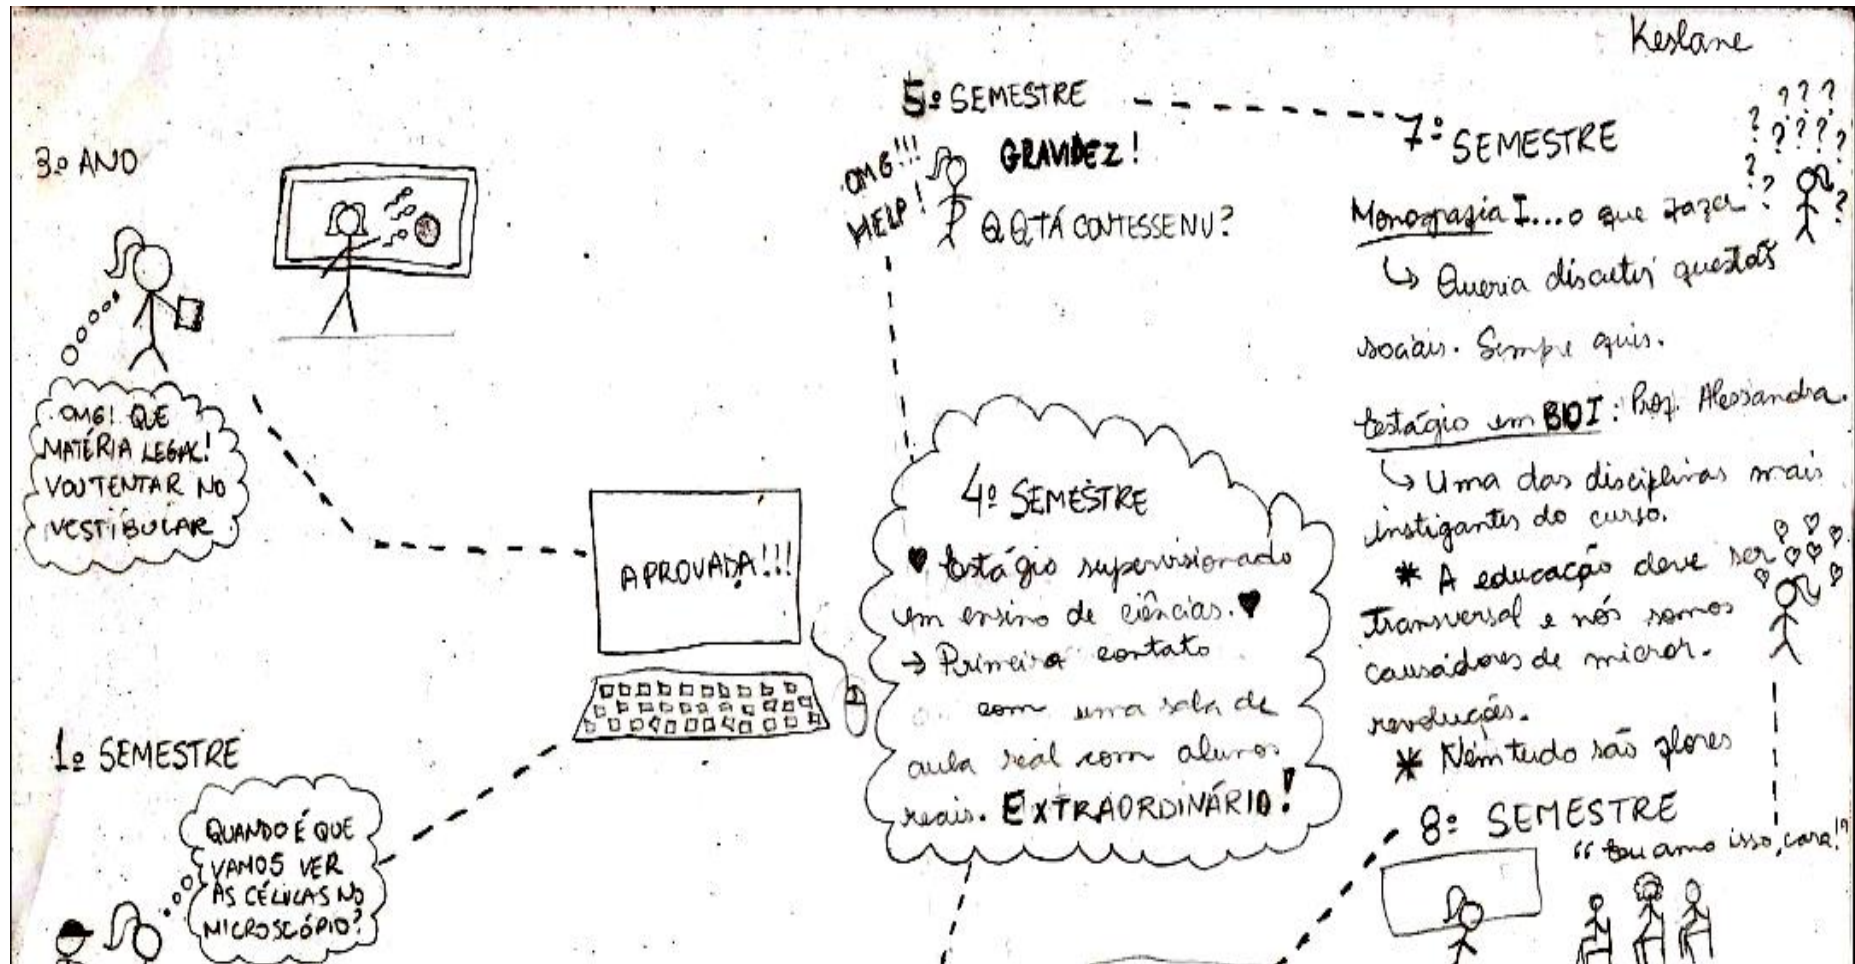 Keslane
3º ANO
OMG! QUE
MATÉRIA LEGAL!
VOU TENTAR NO
VESTIBULAR
APROVADA!!!
1º SEMESTRE
QUANDO É QUE
VAMOS VER
AS CÉLULAS NO
MICROSCÓPIO?
4º SEMESTRE
♥ Estágio supervisionado
em ensino de ciências. ♥
→ Primeiro contato
com uma sala de
aula real com alunos
reais. EXTRAORDINÁRIO!
5º SEMESTRE
GRAVIDEZ!
OMG!!!
HELP!
Q Q TÁ CONTESSENU?
7º SEMESTRE
? ? ?
? ? ? ? ?
? ?
?
Monografia I... o que fazer
↳ Queria discutir questões
sociais. Sempre quis.
Estágio em BIO I: Prof. Alessandra.
↳ Uma das disciplinas mais
instigantes do curso.
* A educação deve ser
transversal e nós somos
causadores de micror.
revoluções.
* Nem tudo são flores
8º SEMESTRE
"Eu amo isso, cara!"